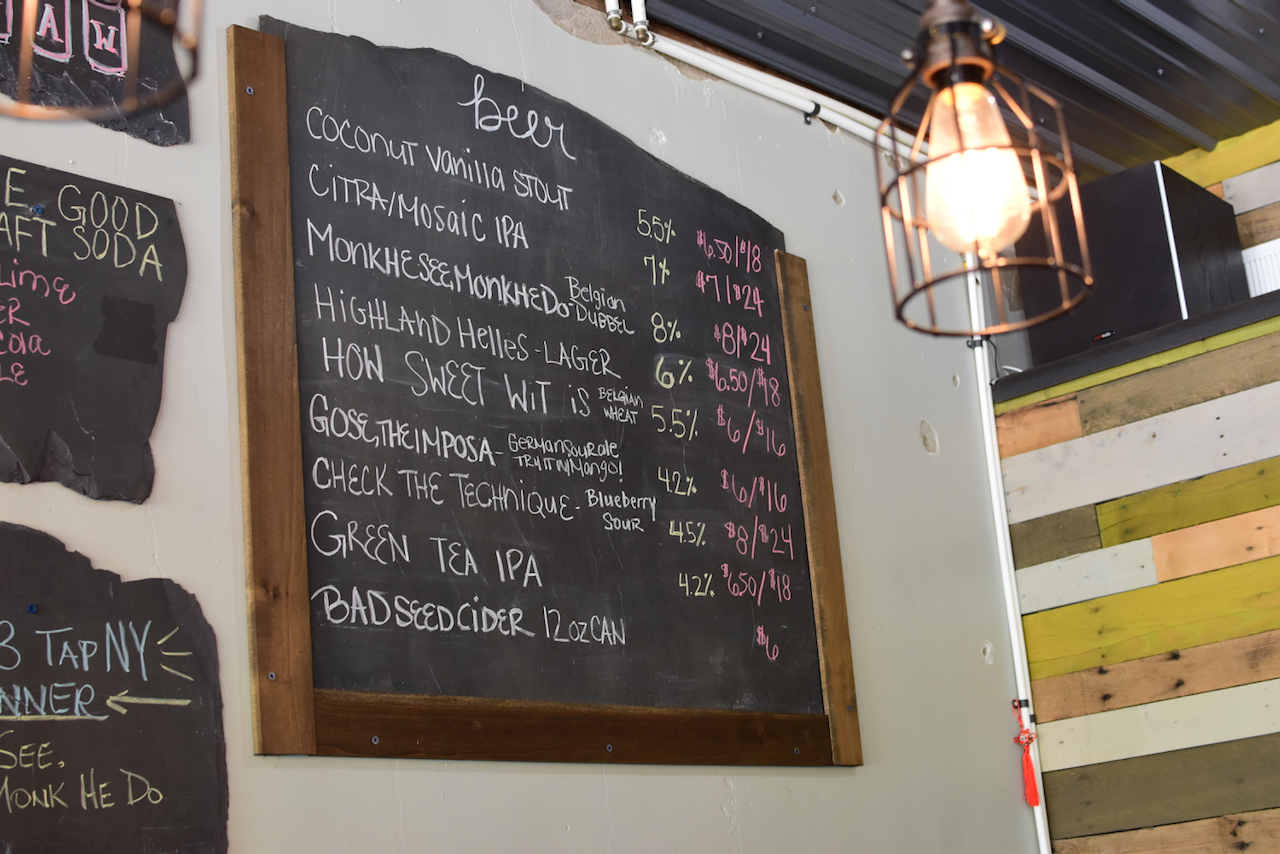 A W
E GOOD
AFT SODA
Lime
ER
Cola
LE
3 TAP NY
NNER
SEE,
MONK HE DO
beer
COCONUT vanilla STOUT 5.5% $6.50/$18
CITRA/MOSAIC IPA 7% $7/$24
MONKHESEEMONKHEDO-Belgian DUBBEL 8% $8/$24
HIGHLAND Helles-LAGER 6% $6.50/$18
HOW SWEET WIT iS BELGIAN WHEAT 5.5% $6/$16
GOSE,THEIMPOSA-GERMANSOURALE TRY IT W/MANGO! 4.2% $6/$16
CHECK THE TECHNIQUE-Blueberry SOUR 4.5% $8/$24
GREEN TEA IPA 4.2% $6.50/$18
BAD SEED CIDER 12oz CAN $6